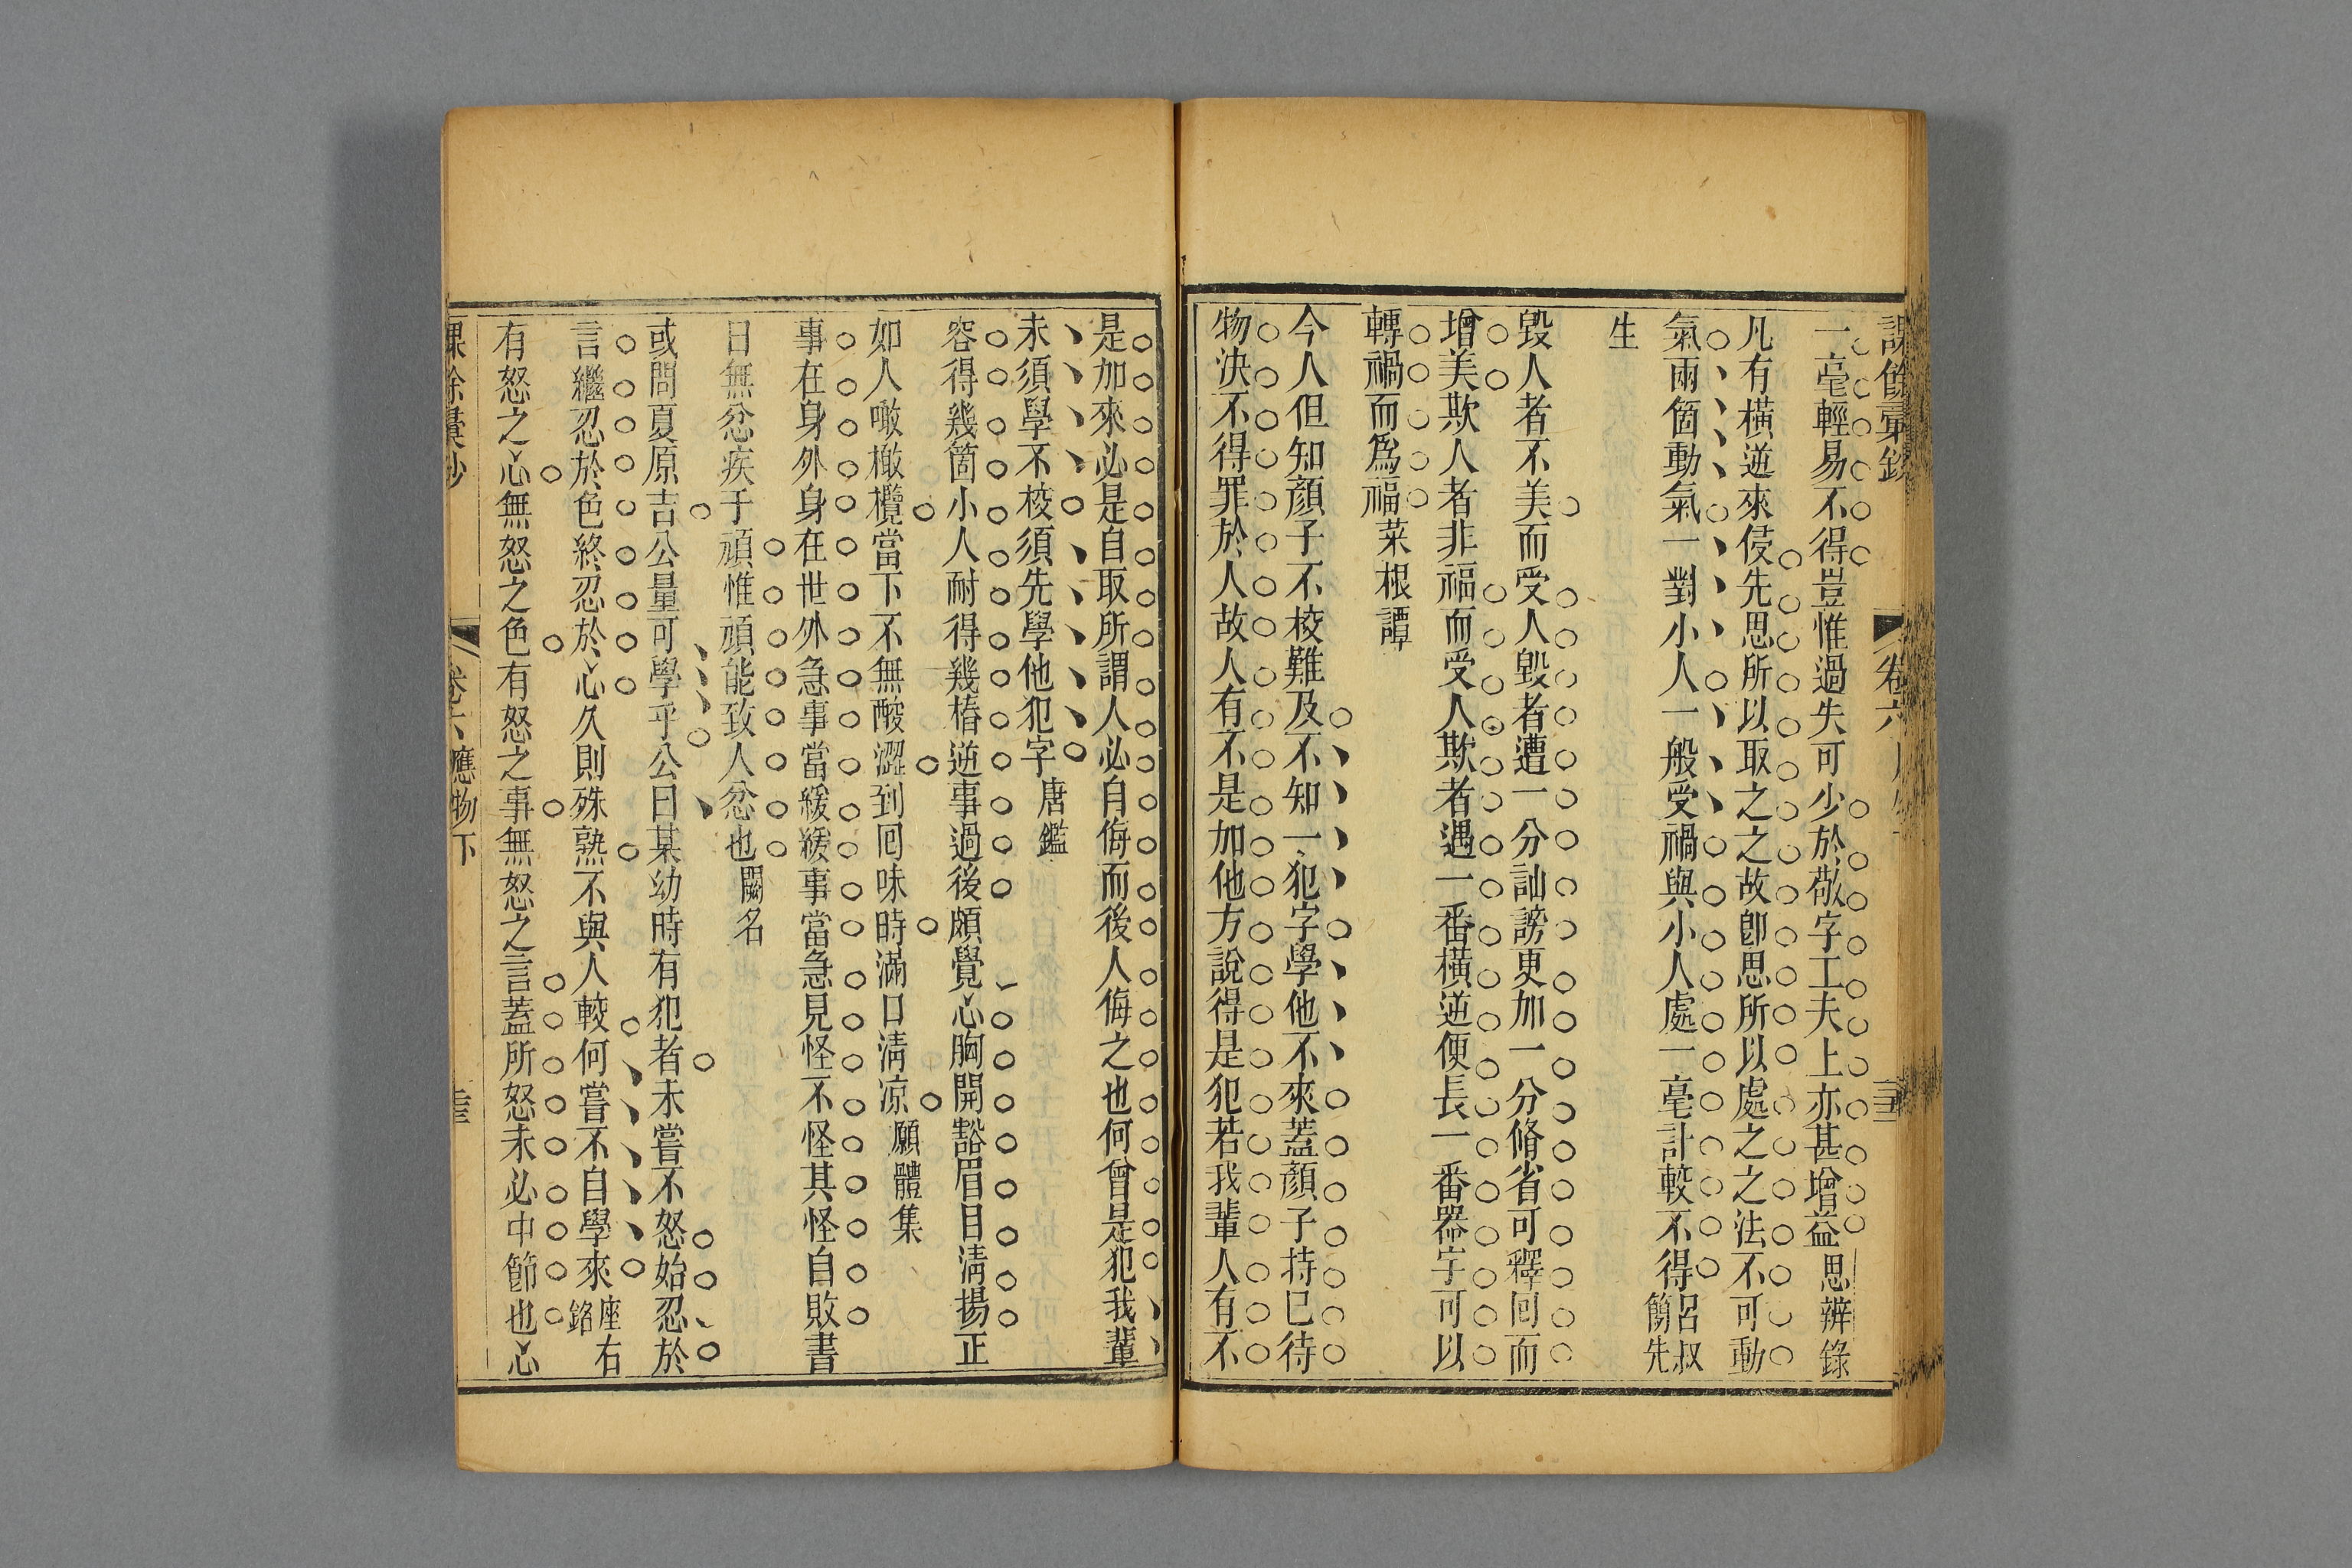 課餘彙鈔
卷六
一毫輕易不得豈惟過失可少於敬字工夫上亦甚增益思辨錄
凡有橫逆來侵先思所以取之之故卽思所以處之之法不可動
氣兩箇動氣一對小人一般受禍與小人處一毫計較不得呂叔簡先
生
毀人者不美而受人毀者遭一分訕謗更加一分脩省可釋回而
增美欺人者非福而受人欺者遇一番橫逆便長一番器宇可以
轉禍而爲福菜根譚
今人但知顏子不校難及不知一犯字學他不來蓋顏子持己待
物決不得罪於人故人有不是加他方說得是犯若我輩人有不
是加來必是自取所謂人必自侮而後人侮之也何曾是犯我輩
未須學不校須先學他犯字唐鑑
容得幾箇小人耐得幾樁逆事過後頗覺心胸開豁眉目淸揚正
如人噉橄欖當下不無酸澀到回味時滿口淸凉願體集
事在身外身在世外急事當緩緩事當急見怪不怪其怪自敗書
曰無忿疾于頑惟頑能致人忿也闕名
或問夏原吉公量可學乎公曰某幼時有犯者未嘗不怒始忍於
言繼忍於色終忍於心久則殊熟不與人較何嘗不自學來座右銘
有怒之心無怒之色有怒之事無怒之言蓋所怒未必中節也心
課餘彙鈔
卷六應物下